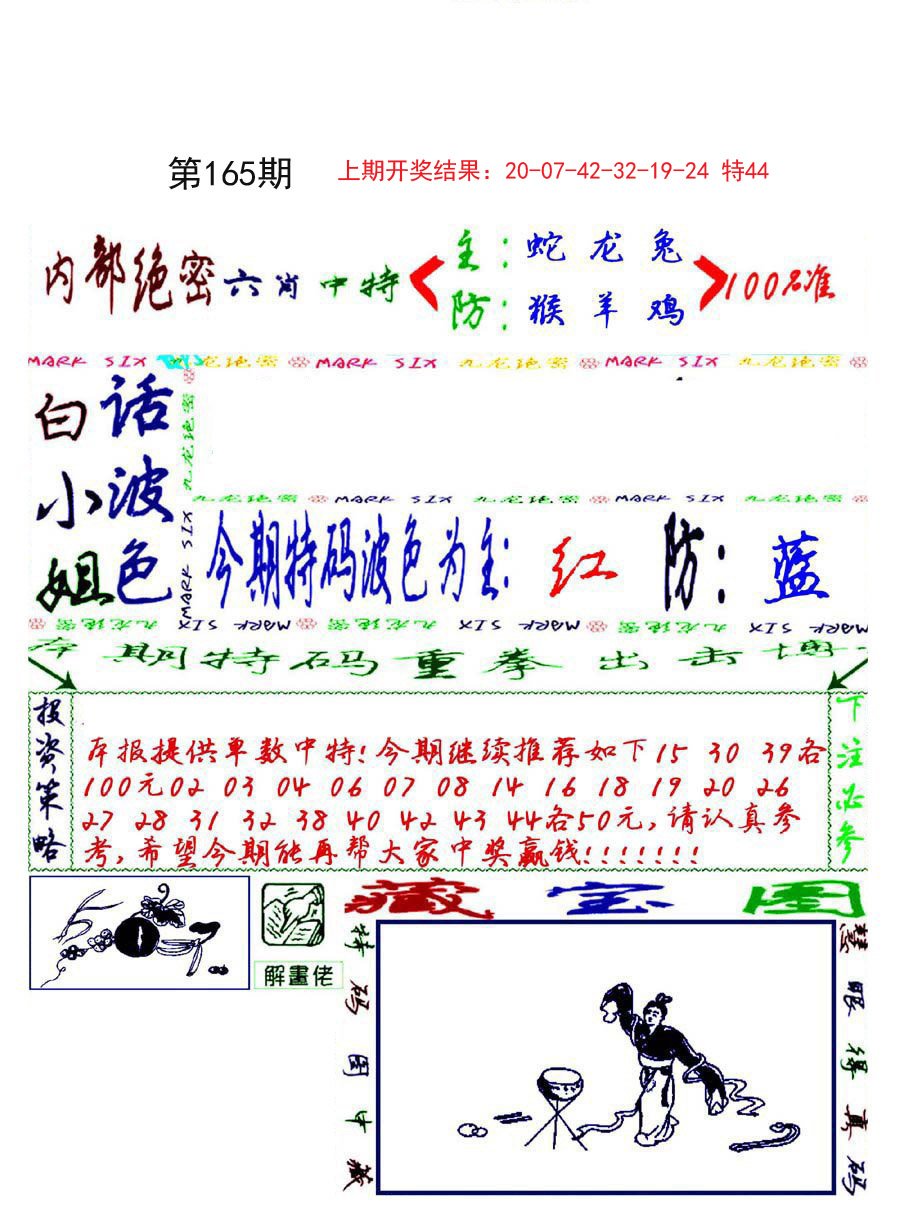 第165期 上期开奖结果：20-07-42-32-19-24 特44
内部绝密六肖中特
主：蛇 龙 兔
防：猴 羊 鸡
100%准
MARK SIX 九龙绝密 MARK SIX 九龙绝密 MARK SIX 九龙绝密
白话
小波
姐色
九龙绝密
MARK SIX
九龙绝密 MARK SIX 九龙绝密 MARK SIX 九龙绝密
今期特码波色为主：红 防：蓝
九龙绝密 MARK SIX 九龙绝密 MARK SIX 九龙绝密 MARK SIX
本期特码重拳出击博
投资策略
本报提供单数中特!今期继续推荐如下15 30 39各
100元02 03 04 06 07 08 14 16 18 19 20 26
27 28 31 32 38 40 42 43 44各50元,请认真参
考,希望今期能再帮大家中奖赢钱!!!!!!!
下注必参
解畫佬
藏宝图
特码图中藏
慧眼得真码